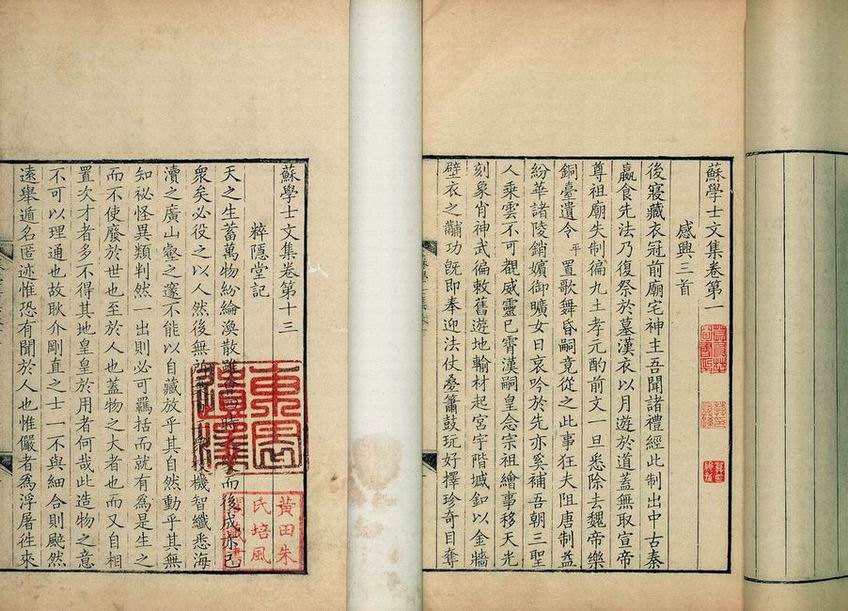 蘇學士文集卷第一
感興三首
後寢藏衣冠前廟宅神主吾聞諸禮經此制出中古秦
嬴食先法乃復祭於墓漢衣以月遊於道蓋無取宣帝
尊祖廟失制徧九土孝元酌前文一旦悉除去魏帝樂
銅臺遺令平置歌舞昏嗣竟從之此事狂夫阻唐制益
紛華諸陵銷嬪御曠女日哀吟於先亦奚補吾朝三聖
人乘雲不可覩威靈已霄漢嗣皇念宗祖繪事移天光
刻象肖神武徧敕舊遊地輸材起宮宇階墄釦以金牆
壁衣之黼功旣即奉迎法仗疊簫鼓玩好擇珍奇目奪
蘇學士文集卷第十三
粹隱堂記
天之生蓄萬物紛綸渙散雖而後成亦已
衆矣必役之以人然後無機智纖悉海
瀆之廣山壑之邃不能以自藏放乎其自然動乎其無
知祕怪異類判然一出則必可羈括而就有爲是生之
而不使廢於世也至於人也蓋物之大者也而又自相
置次才者多不得其地皇皇於用者何哉此造物之意
不可以理通也故耿介剛直之士一不與細合則颷然
遠舉遁名匿迹惟恐有聞於人也惟儼者爲浮屠徃來
東周
黃田朱
氏培風